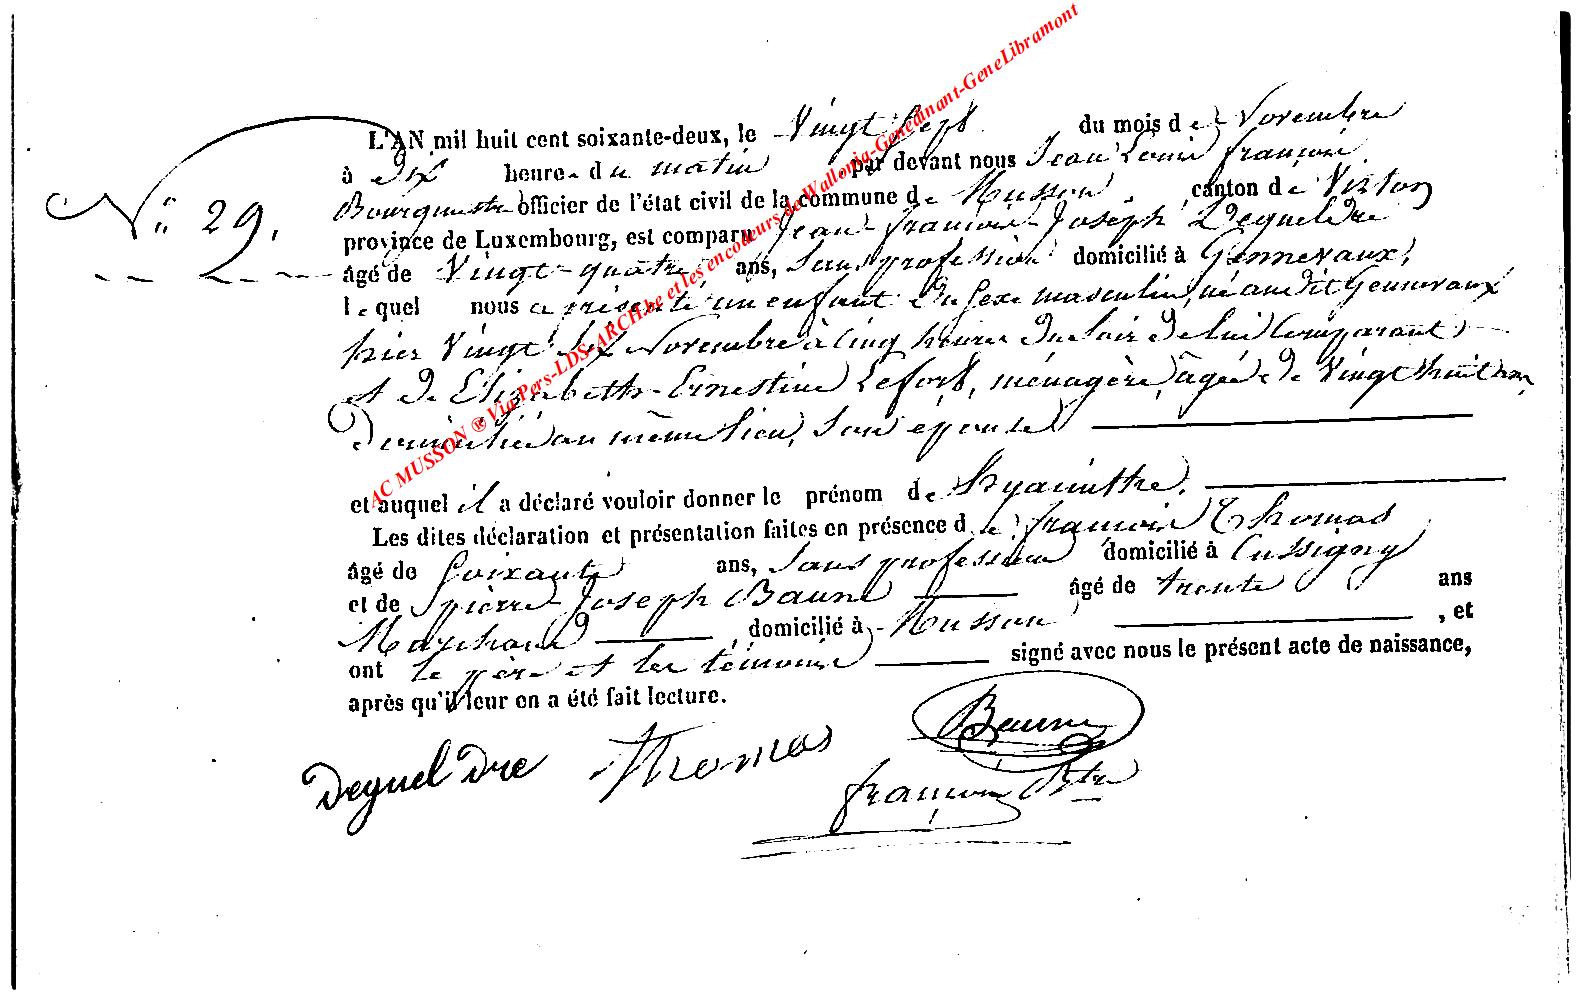 N° 29.
L'AN mil huit cent soixante-deux, le Vingt Sept du mois de Novembre
à Dix heures du matin par devant nous Jean Louis François
Bourgmestre officier de l'état civil de la commune de Musson, canton de Virton
province de Luxembourg, est comparu Jean-François-Joseph Dequeldre
âgé de Vingt-quatre ans, Sans profession domicilié à Gennevaux,
lequel nous a présenté un enfant du sexe masculin, né au dit Gennevaux
hier Vingt six Novembre à cinq heures du soir de lui Comparant
et de Elizabeth-Ernestine Lefort, ménagère, âgée de Vingt huit ans,
Domiciliée au même lieu, Son épouse
et auquel il a déclaré vouloir donner le prénom de Hyacinthe.
Les dites déclaration et présentation faites en présence de François Thomas
âgé de Soixante ans, Sans profession domicilié à Cussigny
et de Pierre-Joseph Baune âgé de trente ans
Marchand, domicilié à Musson, et
ont le père et les témoins signé avec nous le présent acte de naissance,
après qu'il leur en a été fait lecture.
Dequeldre Thomas Baune
François Btre
AC MUSSON ® Via Pers-LDS-ARCH.be et les encodeurs de Wallonia-Genedinant-GeneLibramont